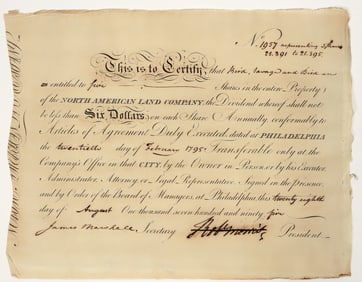 N. 1957 representing Shares
21.391 to 21.395.
This is to Certify, that Bird, Savage and Bird are
entitled to five Shares in the entire Property
of the NORTH AMERICAN LAND COMPANY; the Dividend whereof shall not
be less than Six Dollars on each Share Annually, conformably to
Articles of Agreement Duly Executed; dated at PHILADELPHIA
the twentieth day of February 1795. Transferable only at the
Company's Office in that CITY, by the Owner in Person, or by his Executor,
Administrator, Attorney or Legal Representative. Signed in the presence,
and by Order of the Board of Managers, at Philadelphia, this twenty eighth
day of August One thousand, seven hundred and ninety five
James Marshall Secretary Robt Morris President